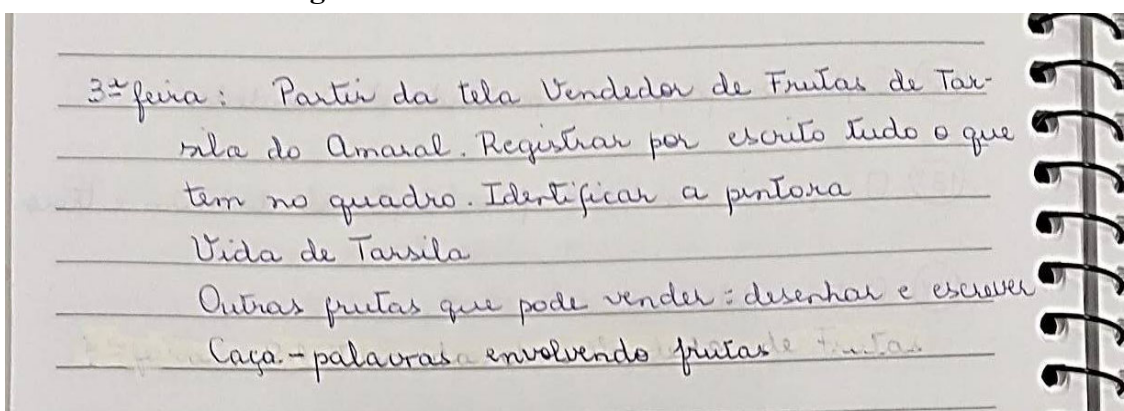 3ª feira: Partir da tela Vendedor de Frutas de Tar-
sila do Amaral. Registrar por escrito tudo o que
tem no quadro. Identificar a pintora
Vida de Tarsila
Outras frutas que pode vender: desenhar e escrever
Caça-palavras envolvendo frutas